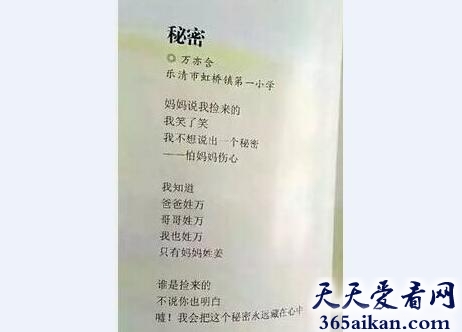 秘密
◎ 万亦含
乐清市虹桥镇第一小学
妈妈说我捡来的
我笑了笑
我不想说出一个秘密
——怕妈妈伤心
我知道
爸爸姓万
哥哥姓万
我也姓万
只有妈妈姓姜
谁是捡来的
不说你也明白
嘘！我会把这个秘密永远藏在心中
天天爱看网
365aikan.com